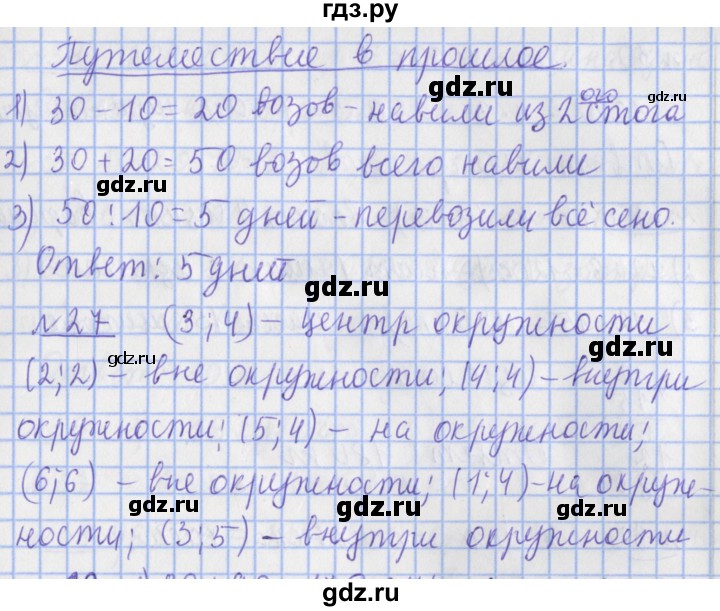 гдз.ру
Путешествие в прошлое.
gdz.ru
1) 30 – 10 = 20 возов – навили из 2ого стога
gdz.ru
gdz.ru
2) 30 + 20 = 50 возов всего навили
gdz.ru
3) 50 : 10 = 5 дней – перевозили всё сено.
gdz.ru
Ответ: 5 дней
gdz.ru
№ 27 (3;4) – центр окружности
gdz.ru
gdz.ru
(2;2) – вне окружности; (4;4) – внутри
окружности; (5;4) – на окружности;
gdz.ru
gdz.ru
(6;6) – вне окружности; (1;4) – на окруж-
gdz.ru
ности; (3;5) – внутри окружности
gdz.ru
gdz.ru